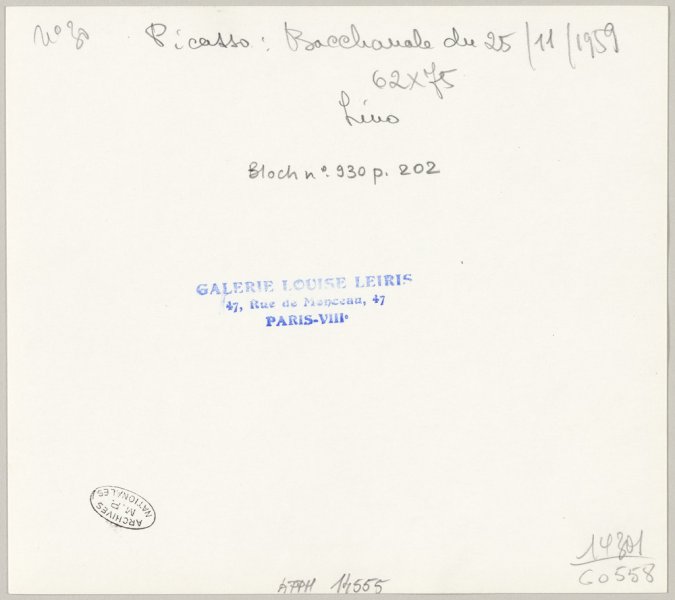 N° 30 Picasso : Bacchanale du 25/11/1959
62x75
Lino
Bloch n°. 930 p. 202
GALERIE LOUISE LEIRIS
47, Rue de Monceau, 47
PARIS-VIIIe
ARCHIVES
M.P.
NATIONALES
14301
G0558
APPH 14555